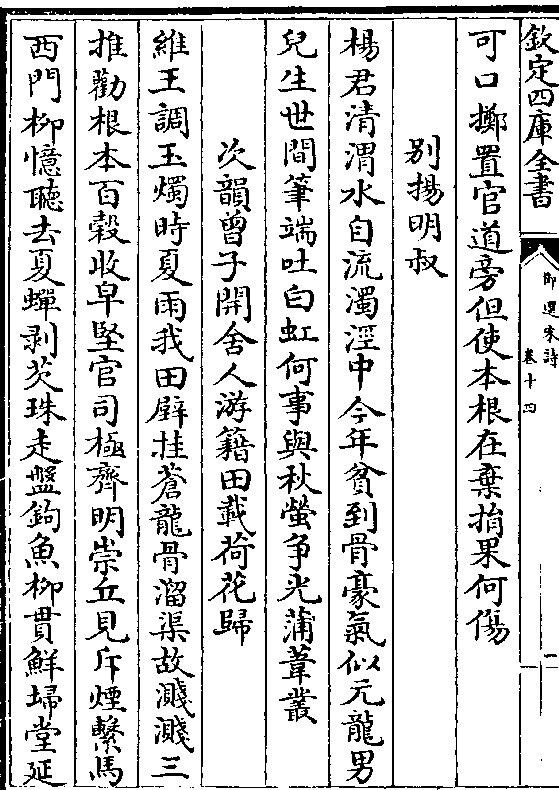 欽定四庫全書
御選宋詩
卷十四
一
可口擲置官道旁但使本根在棄捐果何傷
別揚明叔
楊君清渭水自流濁涇中今年貧到骨豪氣似元龍男
兒生世間筆端吐白虹何事與秋螢争光蒲葦叢
次韻曾子開舍人游籍田載荷花歸
維王調玉燭時夏雨我田壁挂蒼龍骨溜渠故濺濺三
推勸根本百榖收皁堅官司極齊明崇丘見斥煙繫馬
西門柳憶聽去夏蟬剥芡珠走盤鉤魚柳貫鮮埽堂延